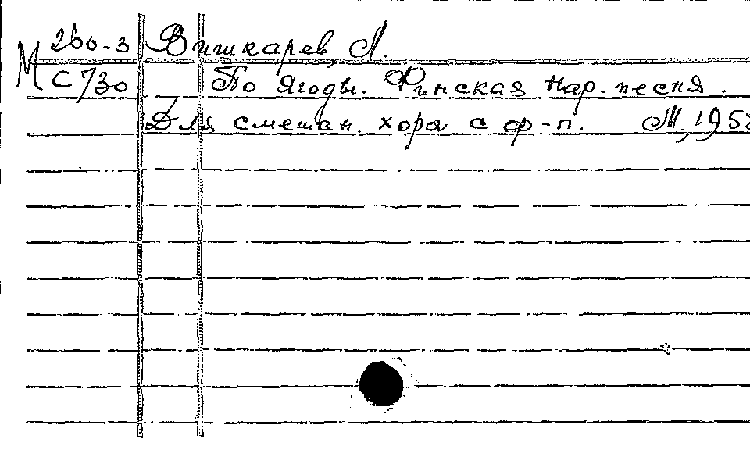 М 260-3 Вишкарев, Л.
С 730 По ягоды. Финская нар. песня.
Для смешан. хора с ф-п. М, 195